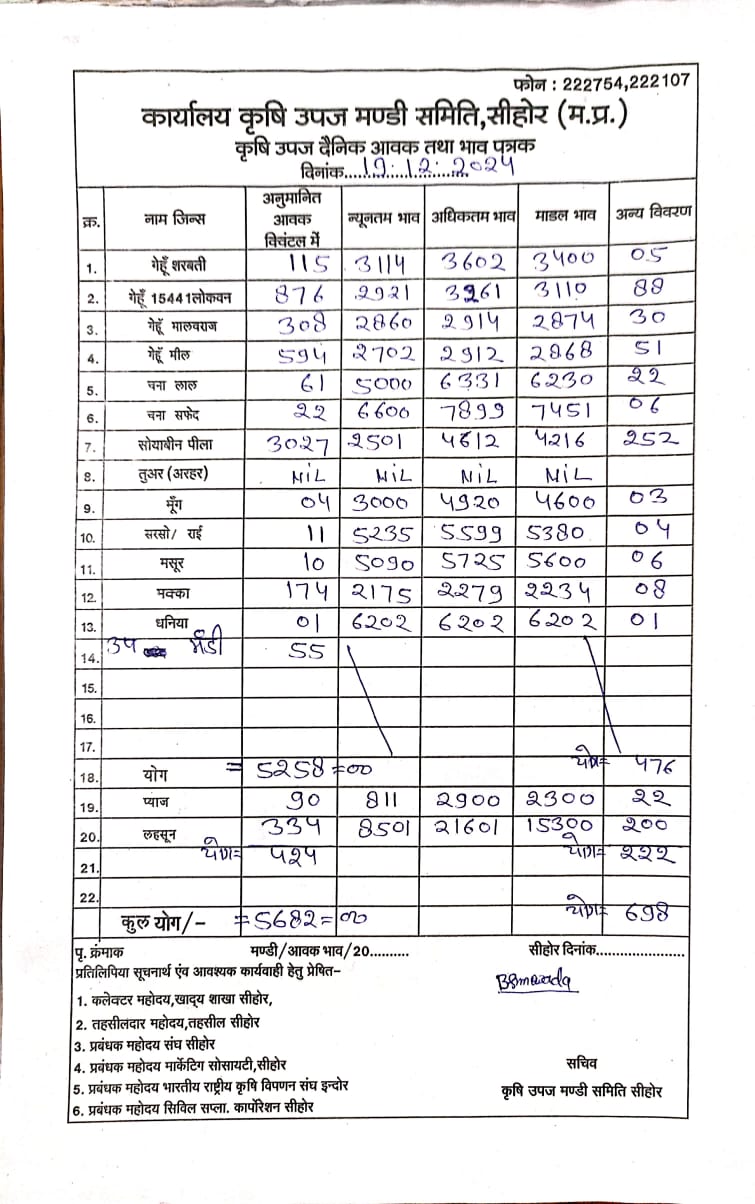 फोन : 222754,222107
कार्यालय कृषि उपज मण्डी समिति,सीहोर (म.प्र.)
कृषि उपज दैनिक आवक तथा भाव पत्रक
दिनांक....19.12.2024
क्र. नाम जिन्स अनुमानित आवक क्विंटल में न्यूनतम भाव अधिकतम भाव माडल भाव अन्य विवरण
1. गेहूँ शरबती 115 3114 3602 3400 05
2. गेहूँ 15441लोकवन 876 2921 3261 3110 88
3. गेहूँ मालवराज 308 2860 2914 2874 30
4. गेहूँ मील 594 2702 2912 2868 51
5. चना लाल 61 5000 6331 6230 22
6. चना सफेद 22 6600 7899 7451 06
7. सोयाबीन पीला 3027 2501 4612 4216 252
8. तुअर (अरहर) NIL NIL NIL NIL
9. मूँग 04 3000 4920 4600 03
10. सरसो/ राई 11 5235 5599 5380 04
11. मसूर 10 5090 5725 5600 06
12. मक्का 174 2175 2279 2234 08
13. धनिया 01 6202 6202 6202 01
14. उप मंडी 55
15.
16.
17.
18. योग = 5258=00 योग= 476
19. प्याज 90 811 2900 2300 22
20. लहसून 334 8501 21601 15300 200
21. योग= 424 योग= 222
22.
कुल योग/- =5682=00 योग= 698
पृ. क्रंमाक मण्डी/आवक भाव/20.......... सीहोर दिनांक......................
प्रतिलिपिया सूचनार्थ एंव आवश्यक कार्यवाही हेतु प्रेषित-
1. कलेक्टर महोदय,खाद्य शाखा सीहोर,
2. तहसीलदार महोदय,तहसील सीहोर
3. प्रबंधक महोदय संघ सीहोर
4. प्रबंधक महोदय मार्केटिग सोसायटी,सीहोर
5. प्रबंधक महोदय भारतीय राष्ट्रीय कृषि विपणन संघ इन्दोर
6. प्रबंधक महोदय सिविल सप्ला. कार्पोरेशन सीहोर
सचिव
कृषि उपज मण्डी समिति सीहोर